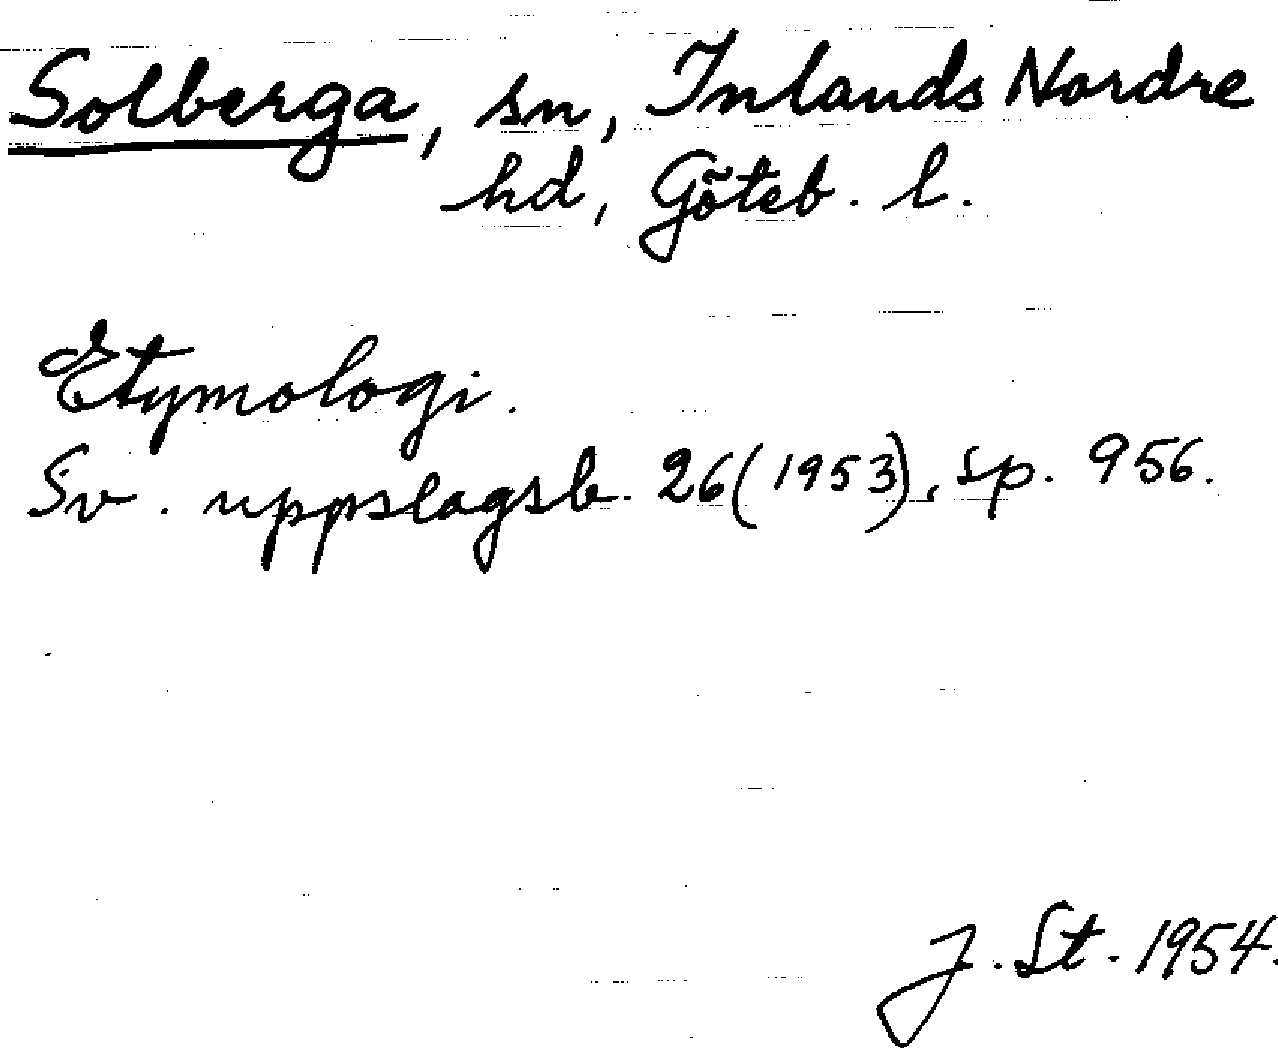 Solberga, sn, Inlands Nordre
hd, Göteb. l.
Etymologi.
Sv. uppslagsb. 26(1953), sp. 956.
J. St. 1954.